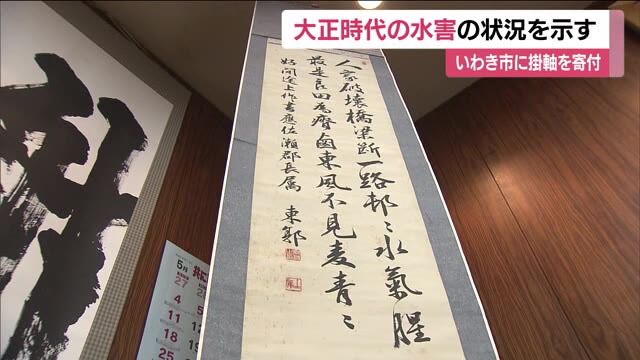 大正時代の水害の状況を示す
いわき市に掛軸を寄付
人家破壊橋梁断一路邨〻水氣腥
最是良田為瘠鹵東風不見麦青〻
好間途上作書應佐瀬郡長属 東郭
5月
27
4
11
18
25